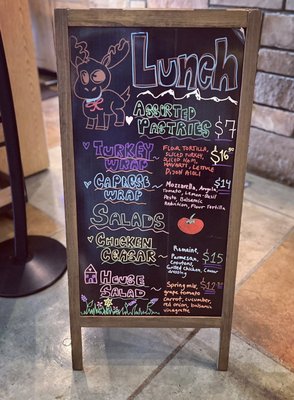 Lunch
Assorted
Pastries $7
Turkey
Wrap
Flour Tortilla,
Sliced Turkey,
Sliced Ham,
Havarti, Lettuce
Dijon Aioli
$16.00
Caprese
Wrap
Mozzarella, Arugula,
Tomato, Lemon-Basil
Pesto, Balsamic
Reduction, Flour Tortilla
$14
Salads
Chicken
Caesar
Romaine,
Parmesan,
Croutons,
Grilled Chicken, Caesar
dressing
$15
House
Salad
Spring mix,
grape tomato
carrot, cucumber,
red onion, balsamic
vinagrette